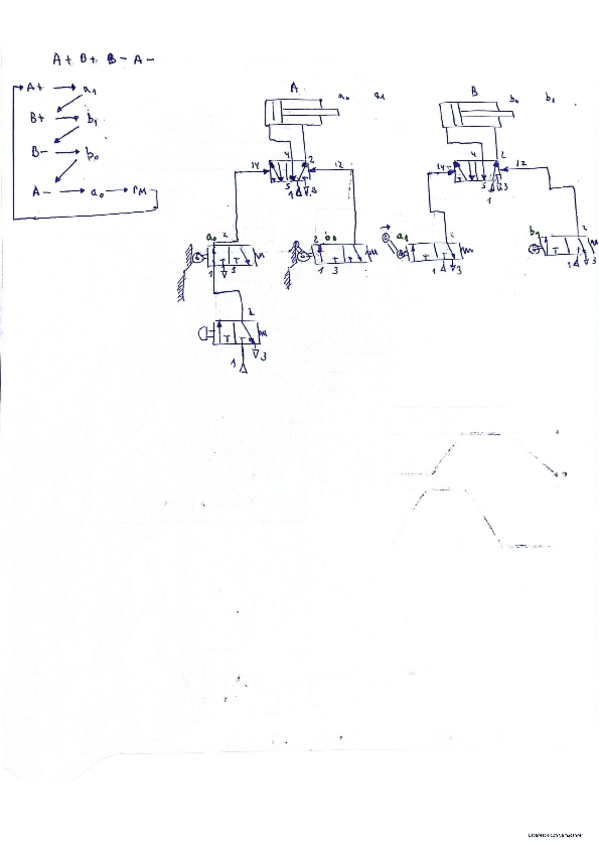 A+ B+ B- A-
A+ → a1
B+ → b1
B- → b0
A- → a0 → PM
A
a0 a1
B
b0 b1
4 2
14 12
5 1 3
4 2
14 12
5 3
1
a0 2
1 3
2 b0
1 3
a1 2
1 3
b1 2
1 3
2
1 3